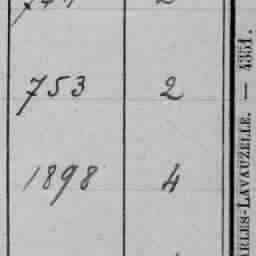 753 2
1898 4
ARLES-LAVAUZELLE. — 4351.